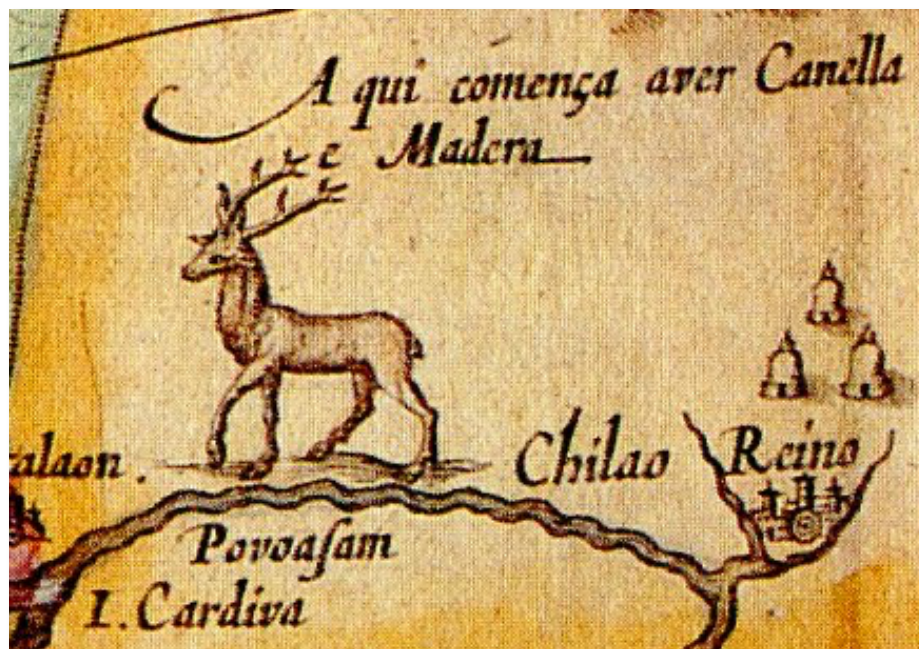 A qui começa aver Canella
e Madera
alaon.
Chilao Reino
Povoaſam
I. Cardiva